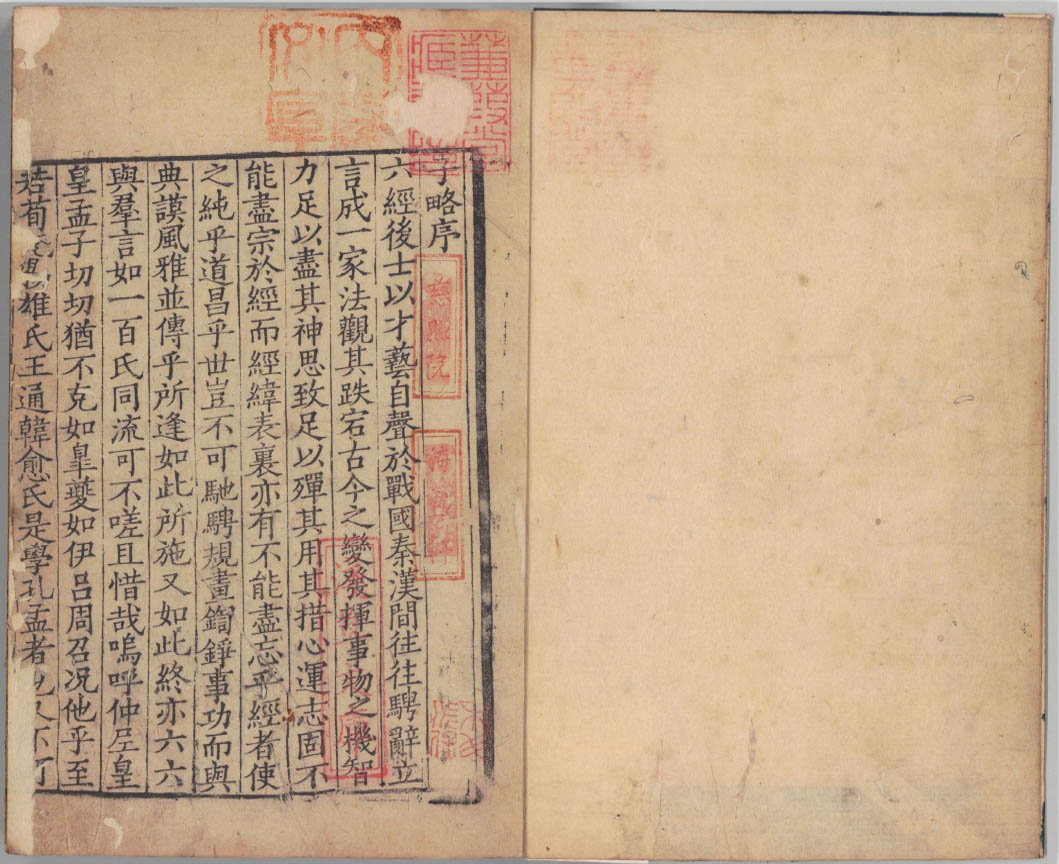 子略序
六經後士以才藝自聲於戰國秦漢間往往騁辭立
言成一家法觀其跌宕古今之變發揮事物之機智
力足以盡其神思致足以殫其用其措心運志固不
能盡宗於經而經緯表裏亦有不能盡忘乎經者使
之純乎道昌乎世豈不可馳騁規畫鍧錚事功而與
典謨風雅並傳乎所逢如此所施又如此終亦六六
與羣言如一百氏同流可不嗟且惜哉嗚呼仲尼皇
皇孟子切切猶不克如皐夔如伊呂周召况他乎至
若荀雄氏王通韓愈氏是學孔孟者也又不可